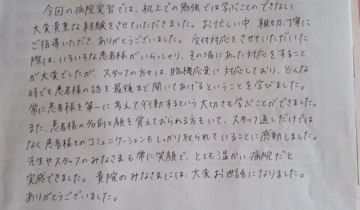 今回の病院実習では、机上での勉強では学ぶことのできない
大変貴重な経験をさせていただきました。お忙しい中、親切、丁寧に
ご指導いただき、ありがとうございました。受付対応をさせていただいた
際は、いろいろな患者様がいらっしゃり、その場にあった対応をすること
が大変でしたが、スタッフの方々は、臨機応変に対応しており、どんな
時でも患者様の話を最後まで聞いてあげるということを学びました。
常に患者様を第一に考えて行動するという大切さも学ぶことができました。
また、患者様の名前と顔を覚えておられる方もいて、スタッフ通しだけでは
なく患者様とのコミュニケーションもしっかり取られていることに感動しました。
先生やスタッフのみなさまも常に笑顔で、とても温かい病院だと
実感できました。貴院のみなさまには、大変お世話になりました。
ありがとうございました。